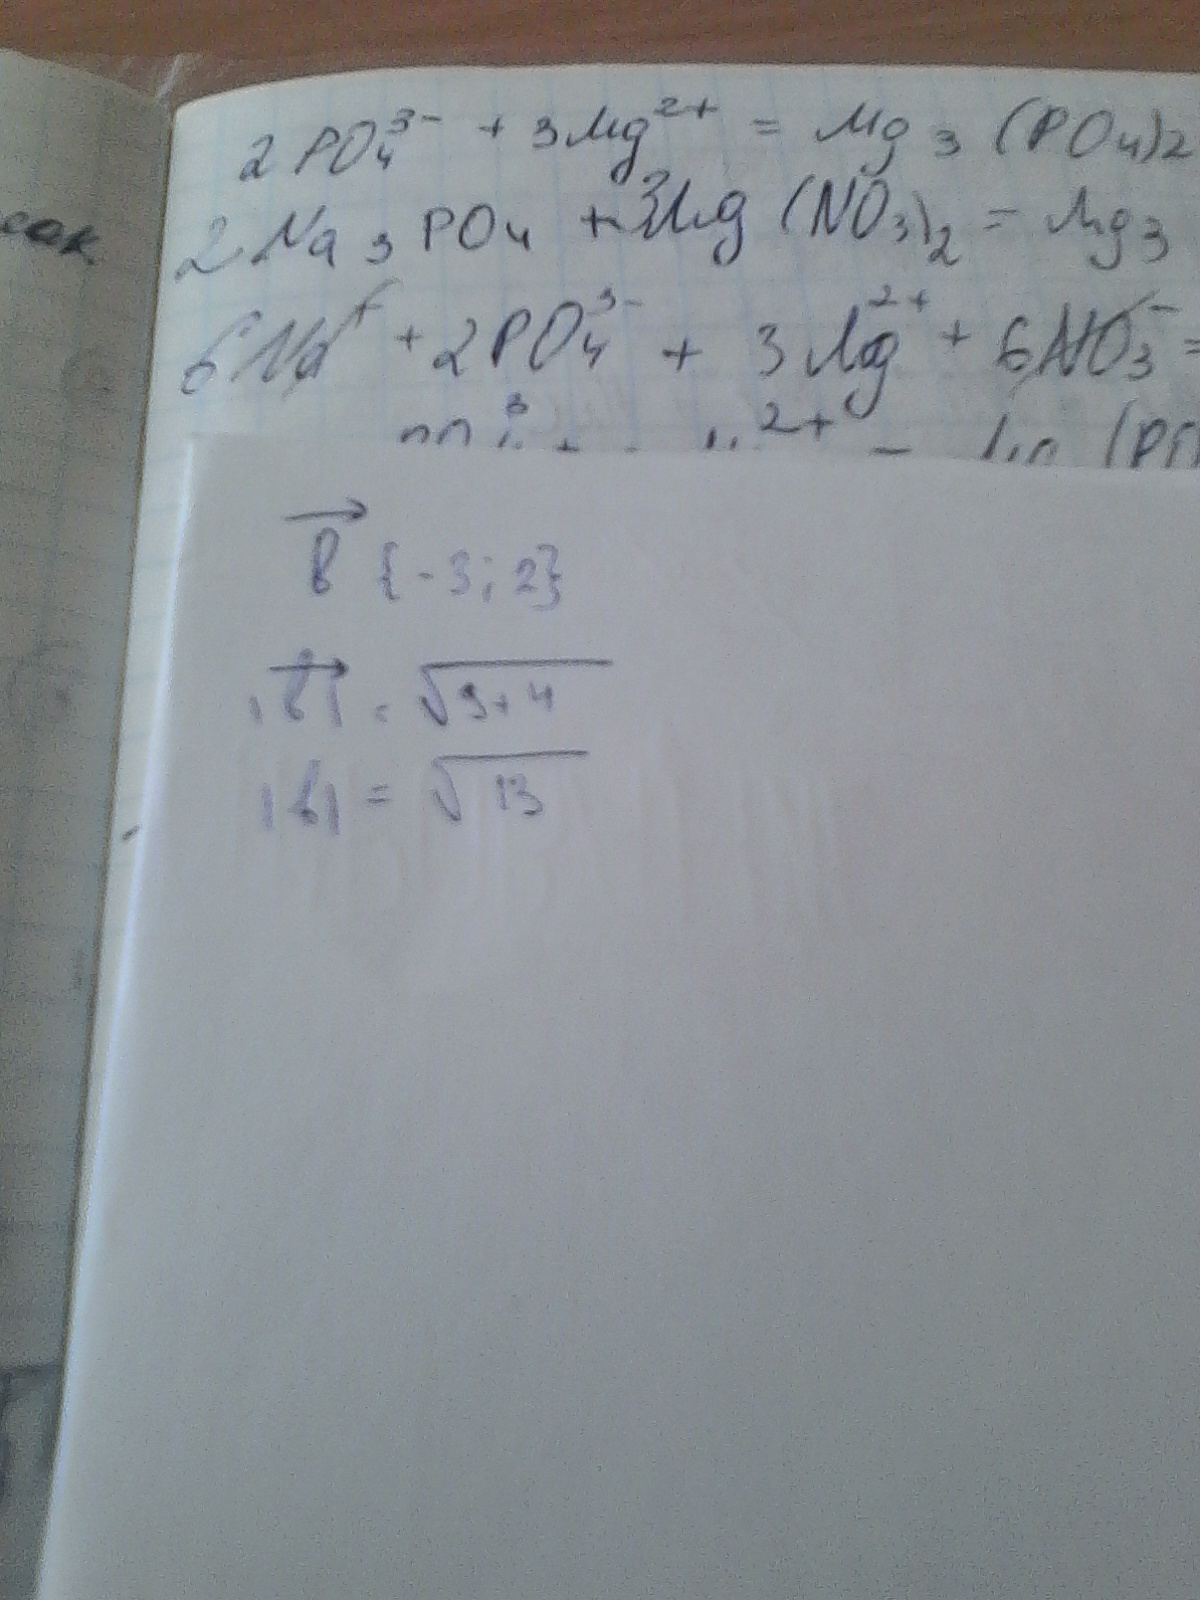 2PO₄³⁻ + 3Mg²⁺ = Mg₃(PO₄)₂
2Na₃PO₄ + 3Mg(NO₃)₂ = Mg₃
6Na⁺ + 2PO₄³⁻ + 3Mg²⁺ + 6NO₃⁻ =
b⃗ {-3; 2}
|b⃗| = √9+4
|b| = √13